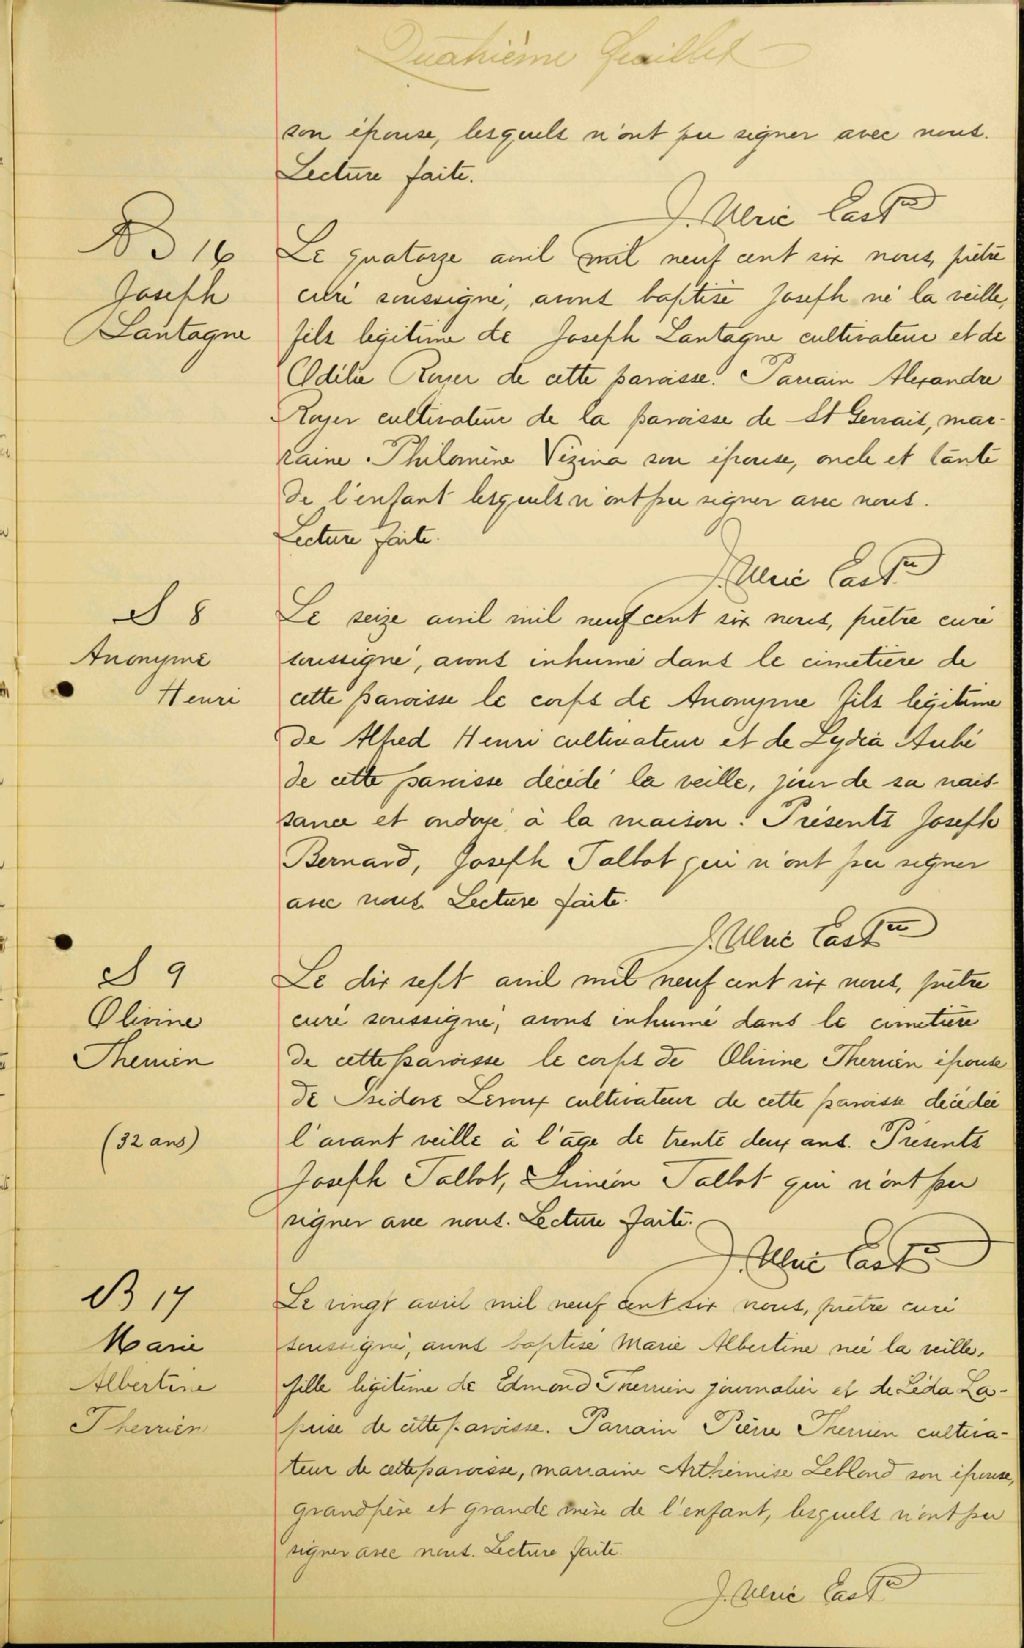 Quatrième feuillet
son épouse, lesquels n'ont pu signer avec nous.
Lecture faite.
J. Ulric East ptre
B 16
Joseph
Lantagne
Le quatorze avril mil neuf cent six nous, prêtre
curé soussigné, avons baptisé Joseph né la veille,
fils légitime de Joseph Lantagne cultivateur et de
Odélie Royer de cette paroisse. Parrain Alexandre
Royer cultivateur de la paroisse de St Gervais, mar-
raine Philomène Vézina son épouse, oncle et tante
de l'enfant lesquels n'ont pu signer avec nous.
Lecture faite.
J. Ulric East ptre
S 8
Anonyme
Henri
Le seize avril mil neuf cent six nous, prêtre curé
soussigné, avons inhumé dans le cimetière de
cette paroisse le corps de Anonyme fils légitime
de Alfred Henri cultivateur et de Lydia Aubé
de cette paroisse décédé la veille, jour de sa nais-
sance et ondoyé à la maison. Présents Joseph
Bernard, Joseph Talbot qui n'ont pu signer
avec nous. Lecture faite.
J. Ulric East ptre
S 9
Olivine
Therrien
(32 ans)
Le dix sept avril mil neuf cent six nous, prêtre
curé soussigné, avons inhumé dans le cimetière
de cette paroisse le corps de Olivine Therrien épouse
de Isidore Leroux cultivateur de cette paroisse décédée
l'avant veille à l'âge de trente deux ans. Présents
Joseph Talbot, Siméon Talbot qui n'ont pu
signer avec nous. Lecture faite.
J. Ulric East ptre
B 17
Marie
Albertine
Therrien
Le vingt avril mil neuf cent six nous, prêtre curé
soussigné, avons baptisé Marie Albertine née la veille,
fille légitime de Edmond Therrien journalier et de Léda La-
prise de cette paroisse. Parrain Pierre Therrien cultiva-
teur de cette paroisse, marraine Arthémise Leblond son épouse,
grandpère et grande mère de l'enfant, lesquels n'ont pu
signer avec nous. Lecture faite.
J. Ulric East ptre